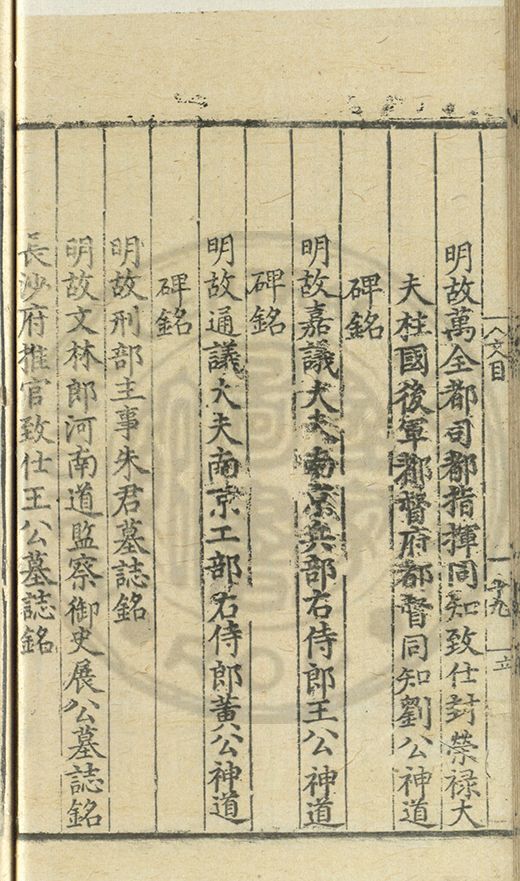 明故萬全都司都指揮同知致仕封榮祿大
夫柱國後軍都督府都督同知劉公神道
碑銘
明故嘉議大夫南京兵部右侍郎王公神道
碑銘
明故通議大夫南京工部右侍郎黃公神道
碑銘
明故刑部主事朱君墓誌銘
明故文林郎河南道監察御史展公墓誌銘
長沙府推官致仕王公墓誌銘